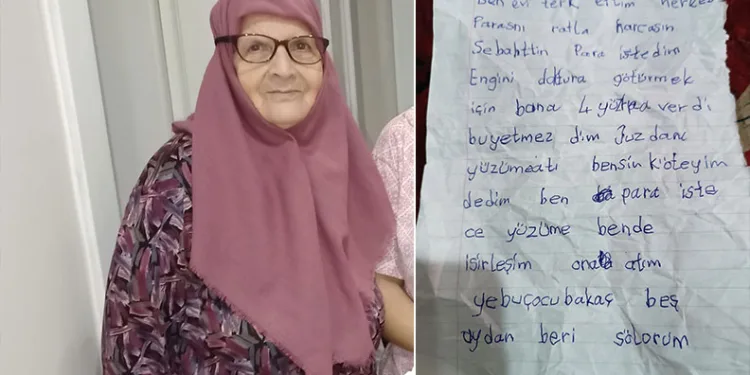 Ben evi terk ettim herkes
Parasnı ratla harcasın
Sebahttin Para istedim
Engini doktura götürmek
için bana 4 yüz verdi
buyetmez dim Juzdanı
yüzümeatı bensin köteyim
dedim ben para iste
ce yüzüme bende
isirleşim atım
yebuçocubakaç beş
aydan beri sölorum